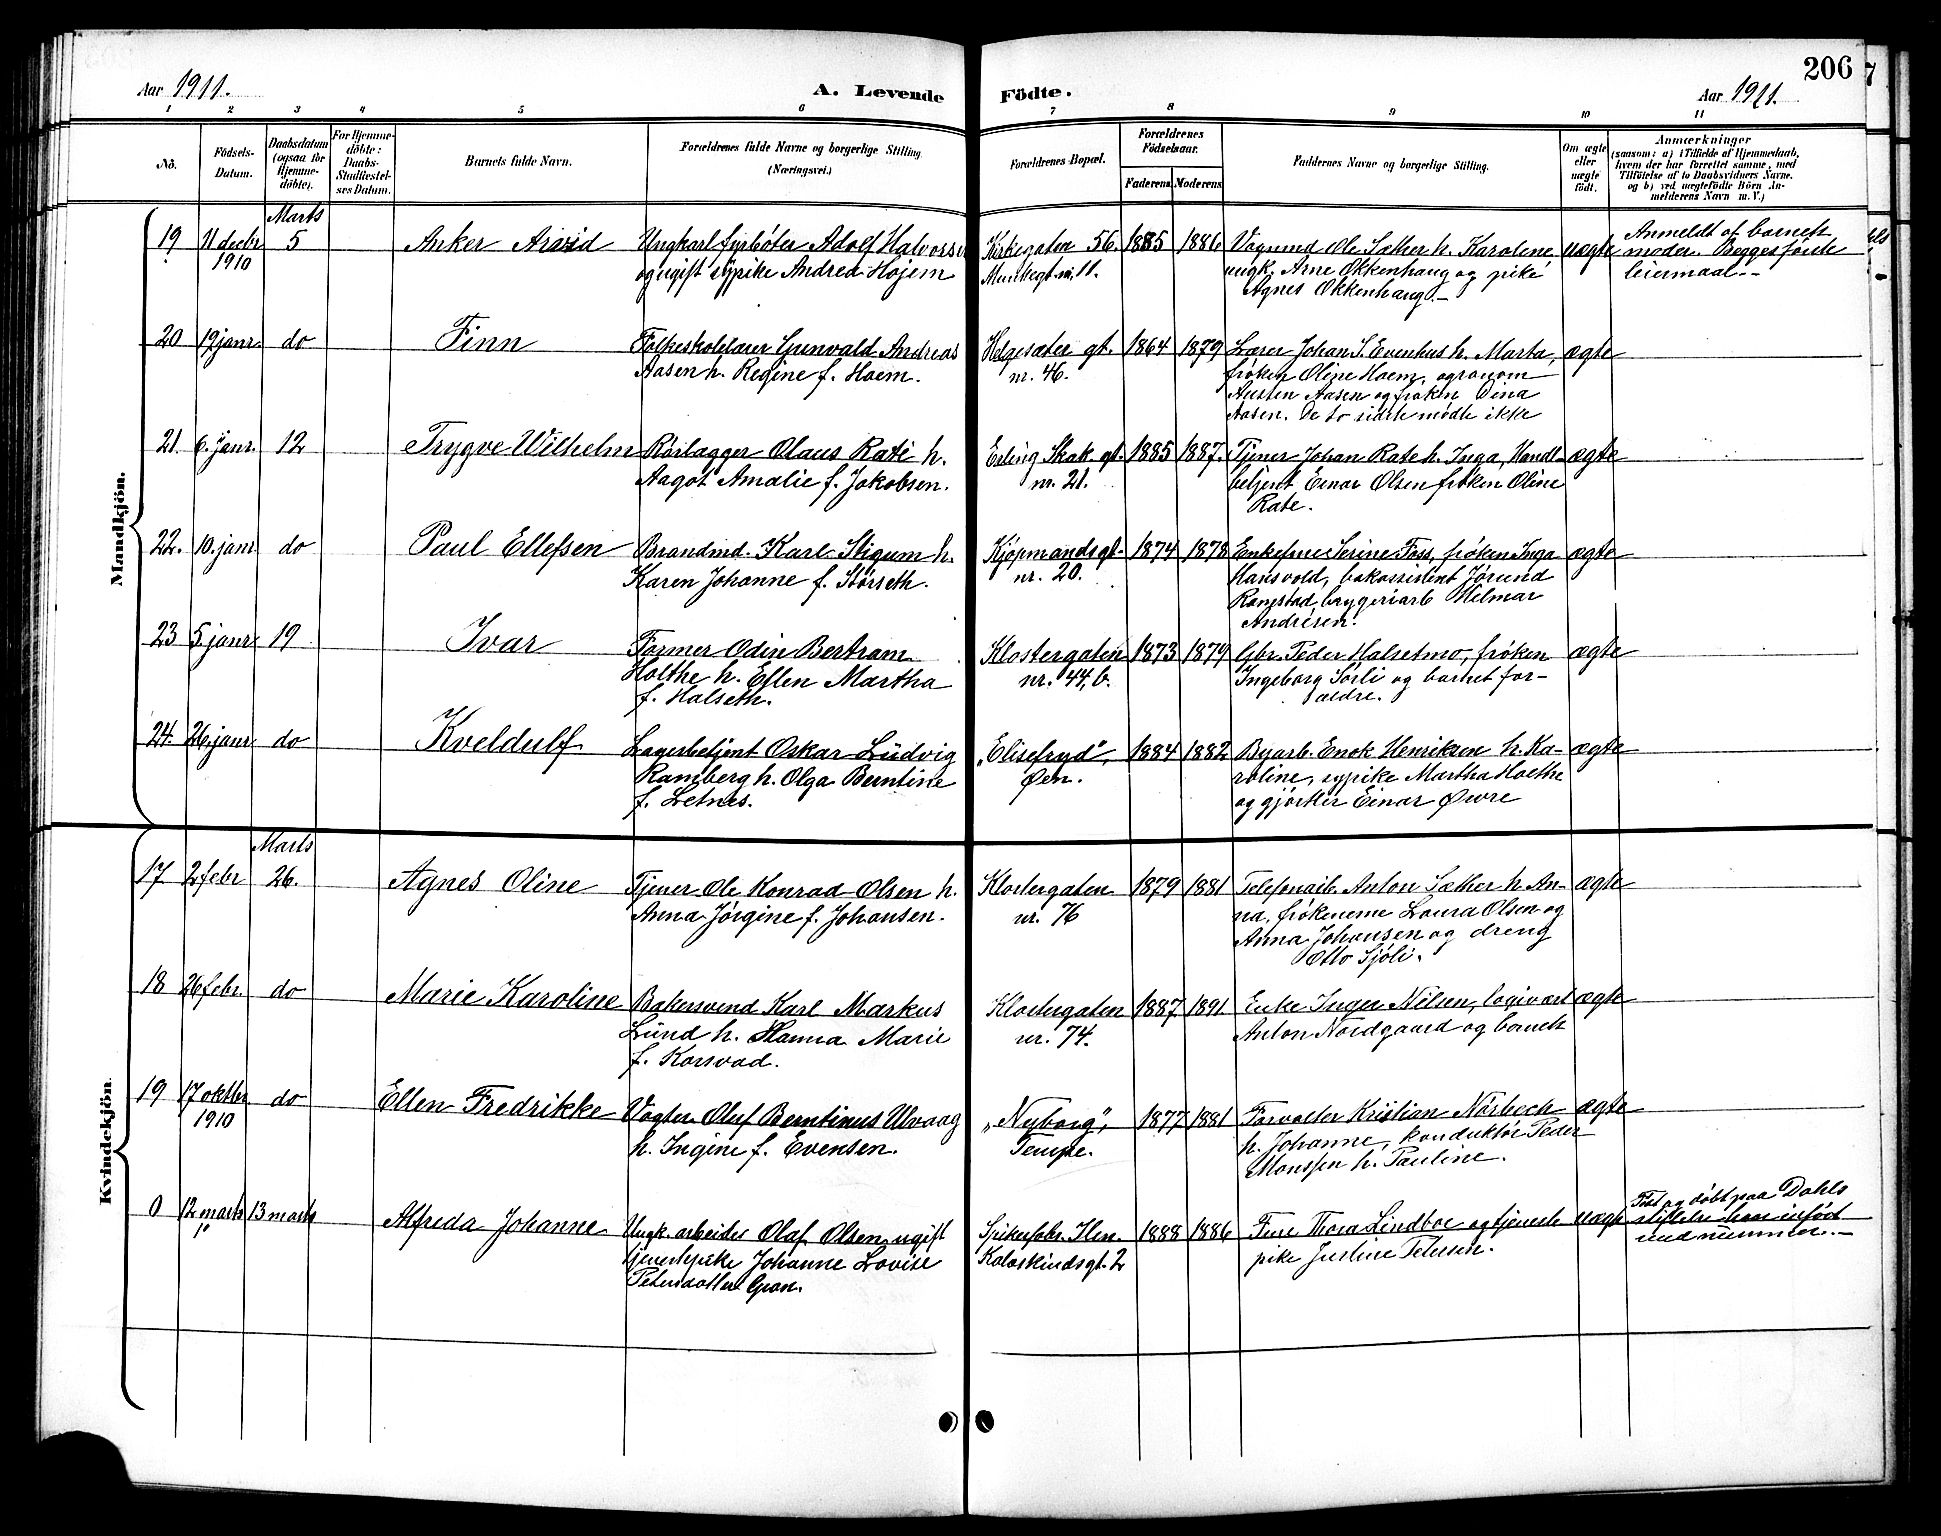 206
7
Aar 1911.
A. Levende
Födte.
Aar 1911.
1 2 3 4 5 6 7 8 9 10 11
No.
Födsels-
Datum.
Daabsdatum
(ogsaa for
Hjemme-
döbte).
For Hjemme-
döbte:
Daabs-
Stadfæstel-
ses Datum.
Barnets fulde Navn.
Forældrenes fulde Navne og borgerlige Stilling
(Næringsvei.)
Forældrenes Bopæl.
Forældrenes
Födselsaar.
Faderens
Moderens
Faddernes Navne og borgerlige Stilling.
Om ægte
eller
uægte
födt.
Anmærkninger
(saasom: a) i Tilfælde af Hjemmedaab,
hvem der har forrettet samme, med
Tilföielse af to Daabsvidners Navne.
og b) ved uægtefödte Börn An-
melderens Navn m. V.)
Mandkjön.
19
11 decbr
1910
Marts
5
Anker Arvid
Ungkarl fyrbøter Adolf Halvorsen
og ugift sypike Andrea Højem
Kirkegaten 56.
1885 1886
Ole Sæther h. Karoline,
ungk. Arne Okkenhaug og pike
Agnes Okkenhaug.-
uægte
Anmeldt af barnets
moder. Begges første
leiermaal.-
20 19 janr. do
Finn
Folkeskolelærer Gunvald Andreas
Aasen h. Regine f. Hoem.
Helgesæter gt.
nr. 46.
1864 1879
Lærer Johan S. Evenhus h. Marta,
frøken Oline Hoem, agronom
Austen Aasen og frøken Dina
Aasen. De to sidste mødte ikke
ægte
21. 6. janr. 12
Trygve Wilhelm
Rørlægger Olaus Rate h.
Aagot Amalie f. Jakobsen.
Erling Skak. gt.
nr. 21.
1885 1887.
Tjener Johan Rate h. Inga, Handl-
betjent Einar Olsen frøken Oline
Rate.
ægte
22. 10. janr do
Paul Ellefsen
Brandmd. Karl Stigum h.
Karen Johanne f. Størseth.
Kjøpmandsgt.
nr. 20.
1874 1878
Enkefrue Serine Foss, frøken Inga
Hansvold, Jørund
Rangstad, bryggeriarb Hilmar
Andresen.
ægte
23 5. janr 19
Ivar
Former Odin Bertram
Holthe h. Ellen Martha
f. Halseth.
Klostergaten
nr. 44, b.
1873 1879
Gbr. Peder Halsetmo, frøken
Ingeborg Sørli og barnet for-
ældre.
ægte
24. 26. janr do
Kveldulf
Lagerbetjent Oskar Ludvig
Ramberg h. Olga Berntine
f. Letnes.
„Elisefryd",
Øen.
1884 1882
Byarb. Enok Henriksen h. Ka-
roline, sypike Martha Holthe
og gjørtler Einar Øwre
ægte
Kvindekjön.
17 2 febr
Marts
26.
Agnes Oline
Tjener Ole Konrad Olsen h.
Anna Jørgine f. Johansen.
Klostergaten
nr. 76
1879 1881
Telefonarb. Anton Sæther h. An-
na, frøknerne Laura Olsen og
Anna Johansen og dreng
Otto Sjøli.
ægte
18 26 febr. do
Marie Karoline
Bakersvend Karl Markus
Lund h. Hanna Marie
f. Korsvad.
Klostergaten
nr. 74.
1887 1891
Enke Inger Nilsen, logivært
Anton Nordgaard og barnets
ægte
19 17 oktbr
1910
do
Ellen Fredrikke
Vogter Oluf Berntinus Ulvaag
h. Ingine f. Evensen.
„Nyborg",
Tempe.
1877 1881
Forvalter Kristian Nörbech
h. Johanne, konduktør Peder
Monssen h. Pauline.
ægte
0 12 marts 13 marts
Alfrida Johanne
Ungk. arbeider Olaf Olsen ugift
tjenestepike Johanne Lovise
Petersdatter Gran.
Spikerfabr. Ilen.
Kalvskindsgt. 2
1888 1886
Frue Thora Lindboe og tjeneste
pike Justine Petersen.
uægte
Født og døbt paa Dahls
stiftelse hvor indført
med nummer.-